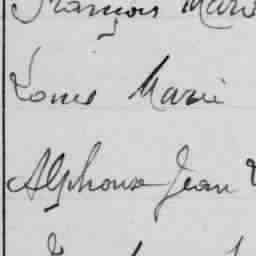 François Marie
Louis Marie
Alphonse Jean